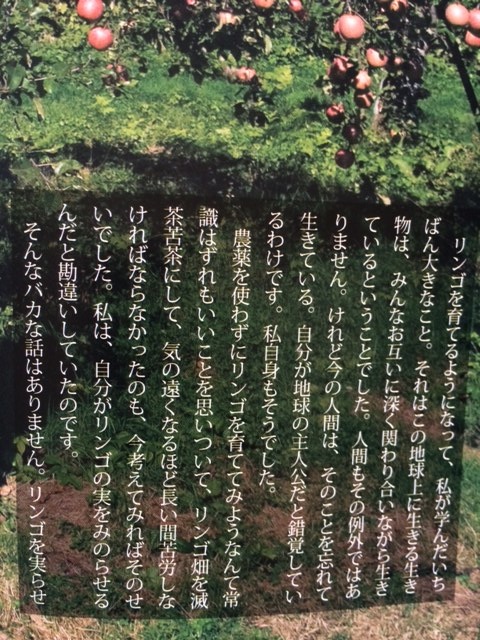 リンゴを育てるようになって、私が学んだいち
ばん大きなこと。それはこの地球上に生きる生き
物は、みんなお互いに深く関わり合いながら生き
ているということでした。人間もその例外ではあ
りません。けれど今の人間は、そのことを忘れて
生きている。自分が地球の主人公だと錯覚してい
るわけです。私自身もそうでした。
農薬を使わずにリンゴを育ててみようなんて常
識はずれもいいことを思いついて、リンゴ畑を滅
茶苦茶にして、気の遠くなるほど長い間苦労しな
ければならなかったのも、今考えてみればそのせ
いでした。私は、自分がリンゴの実をみのらせる
んだと勘違いしていたのです。
そんなバカな話はありません。リンゴを実らせ